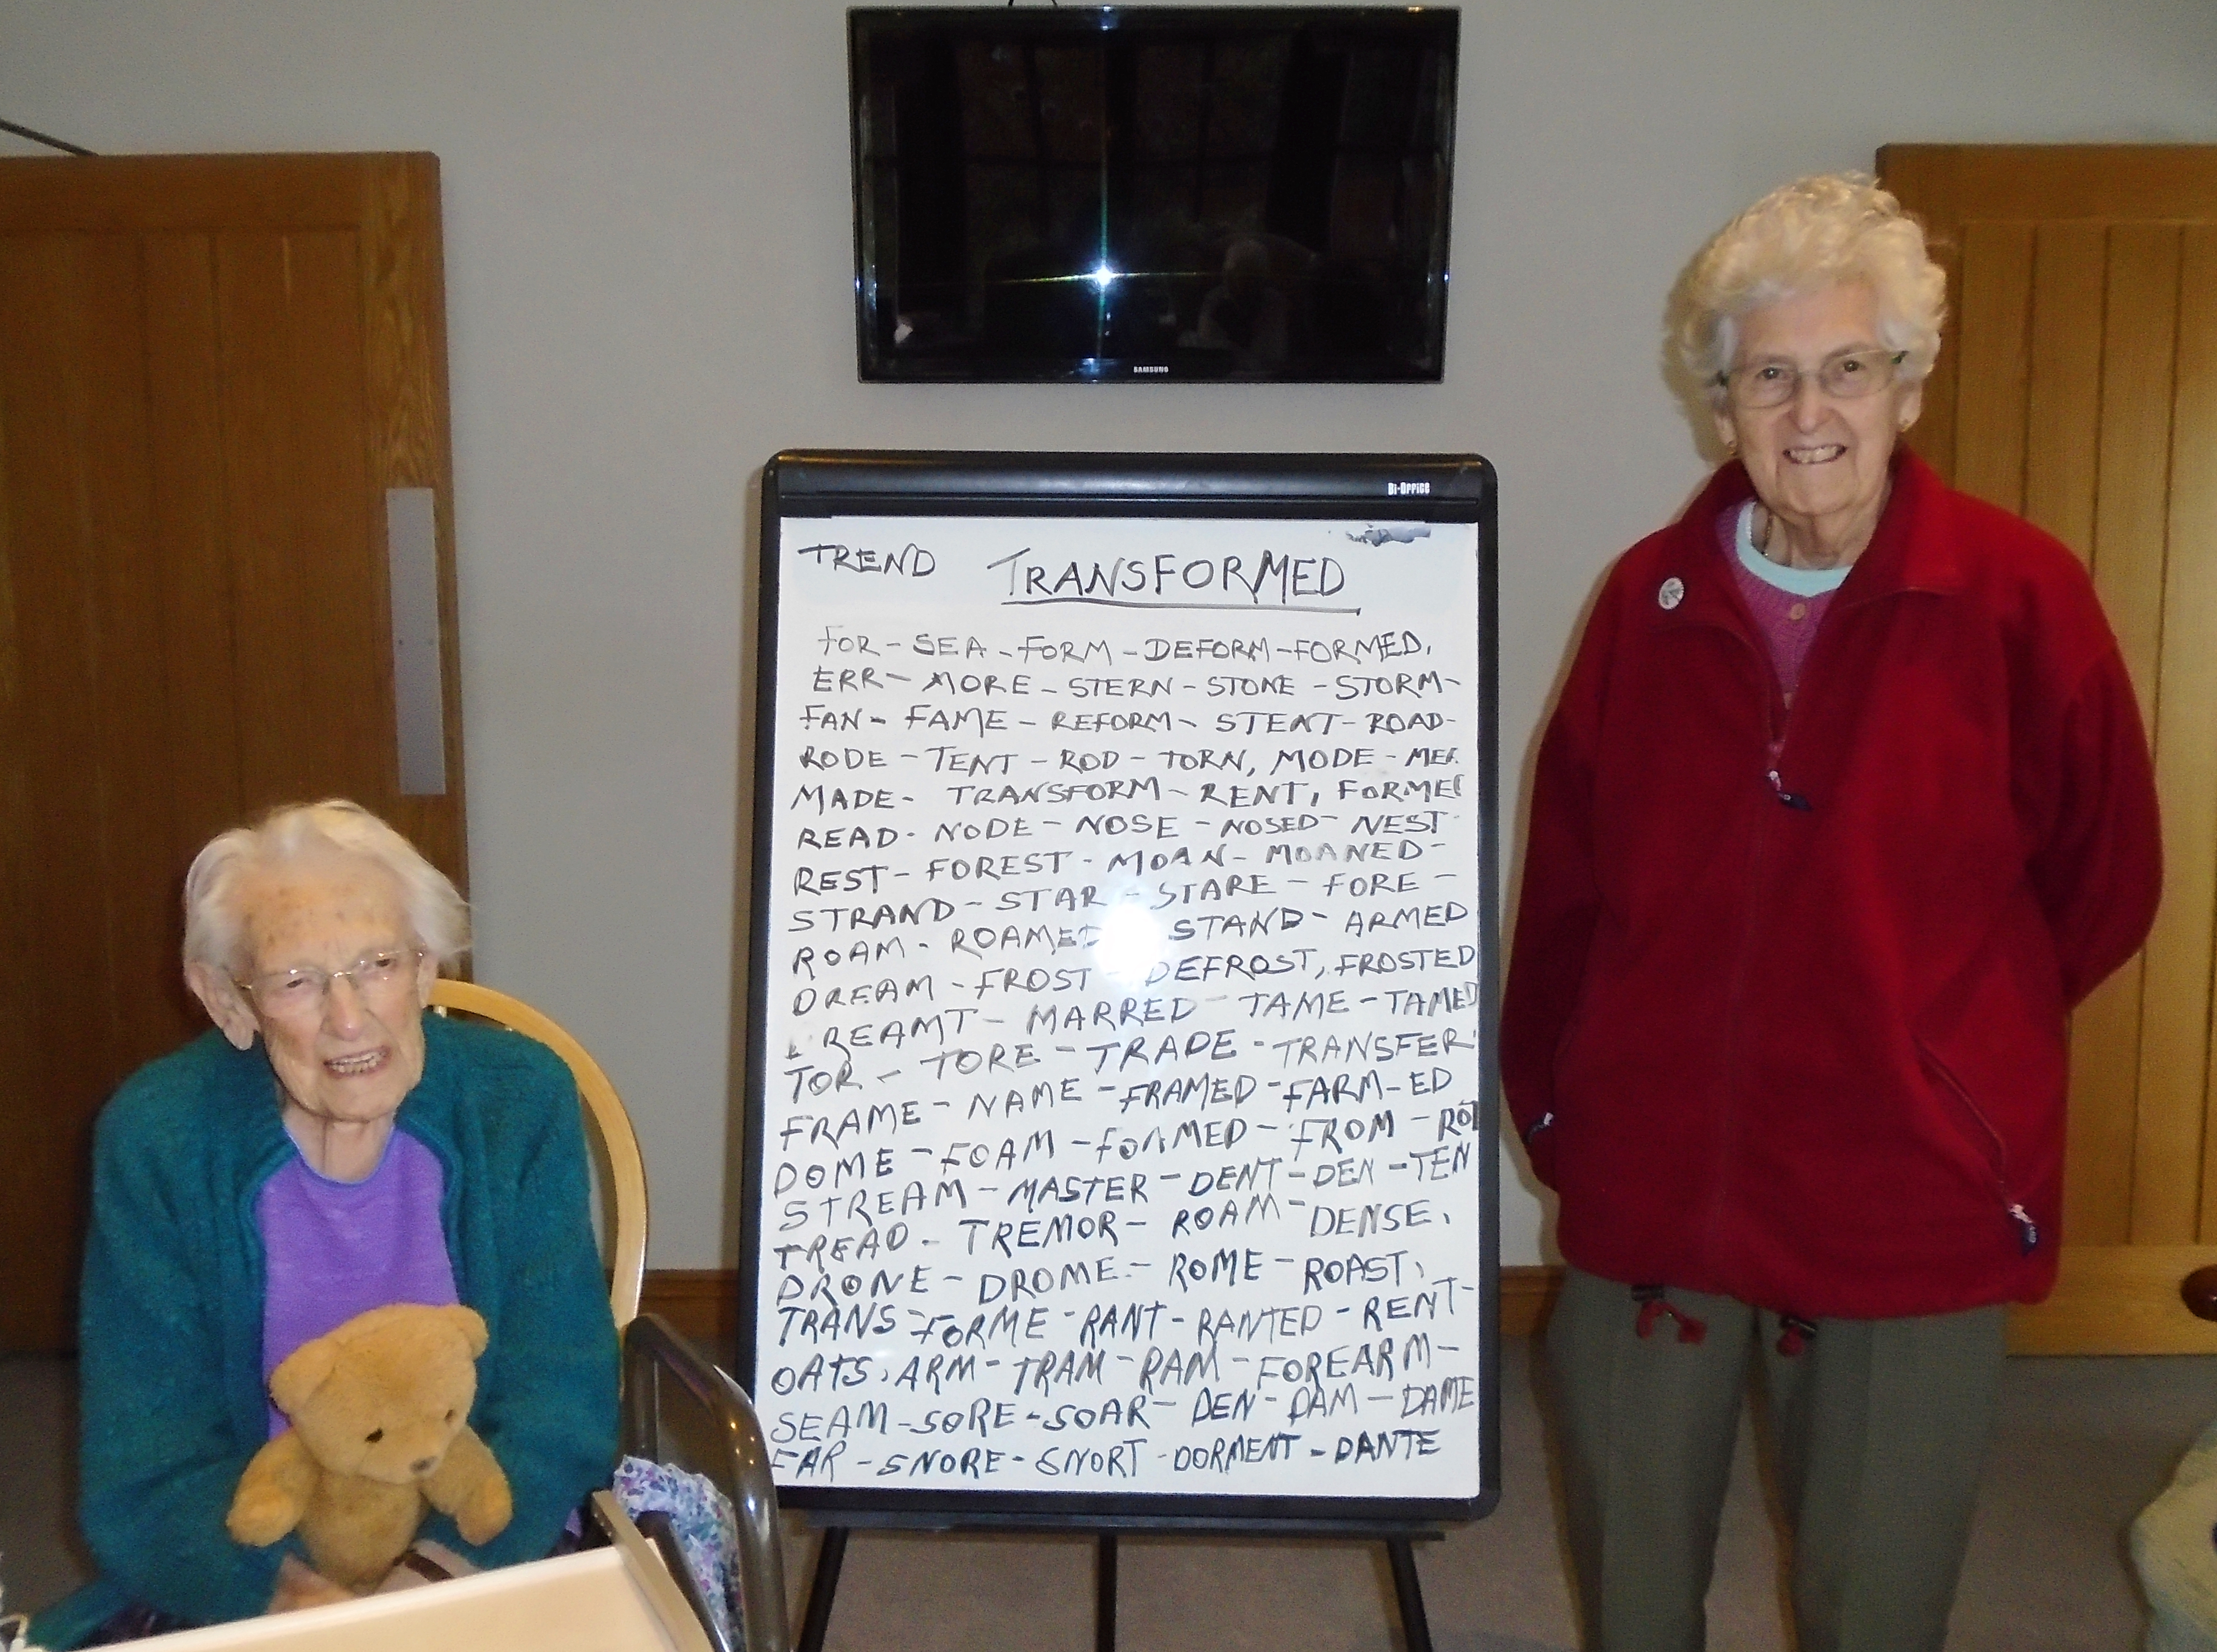 SAMSUNG
Bi-Office
TREND TRANSFORMED
FOR - SEA - FORM - DEFORM - FORMED,
ERR - MORE - STERN - STONE - STORM -
FAN - FAME - REFORM - STENT - ROAD -
RODE - TENT - ROD - TORN, MODE -
MADE - TRANSFORM - RENT,
READ - NODE - NOSE - NOSED - NEST
REST - FOREST - MOAN - MOANED -
STRAND - STAR - STARE - FORE -
ROAM - ROAMED STAND - ARMED
DREAM - FROST - DEFROST, FROSTED
REAMT - MARRED - TAME - TAMED
TOR - TORE - TRADE - TRANSFER
FRAME - NAME - FRAMED - FARM-ED
DOME - FOAM - FOAMED - FROM -
STREAM - MASTER - DENT - DEN - TEN
TREAD - TREMOR - ROAM - DENSE,
DRONE - DROME - ROME - ROAST,
TRANS - FORME - RANT - RANTED - RENT -
OATS, ARM - TRAM - RAM - FOREARM -
SEAM - SORE - SOAR - DEN - DAM - DAME
EAR - SNORE - SNORT - DORMENT - DANTE